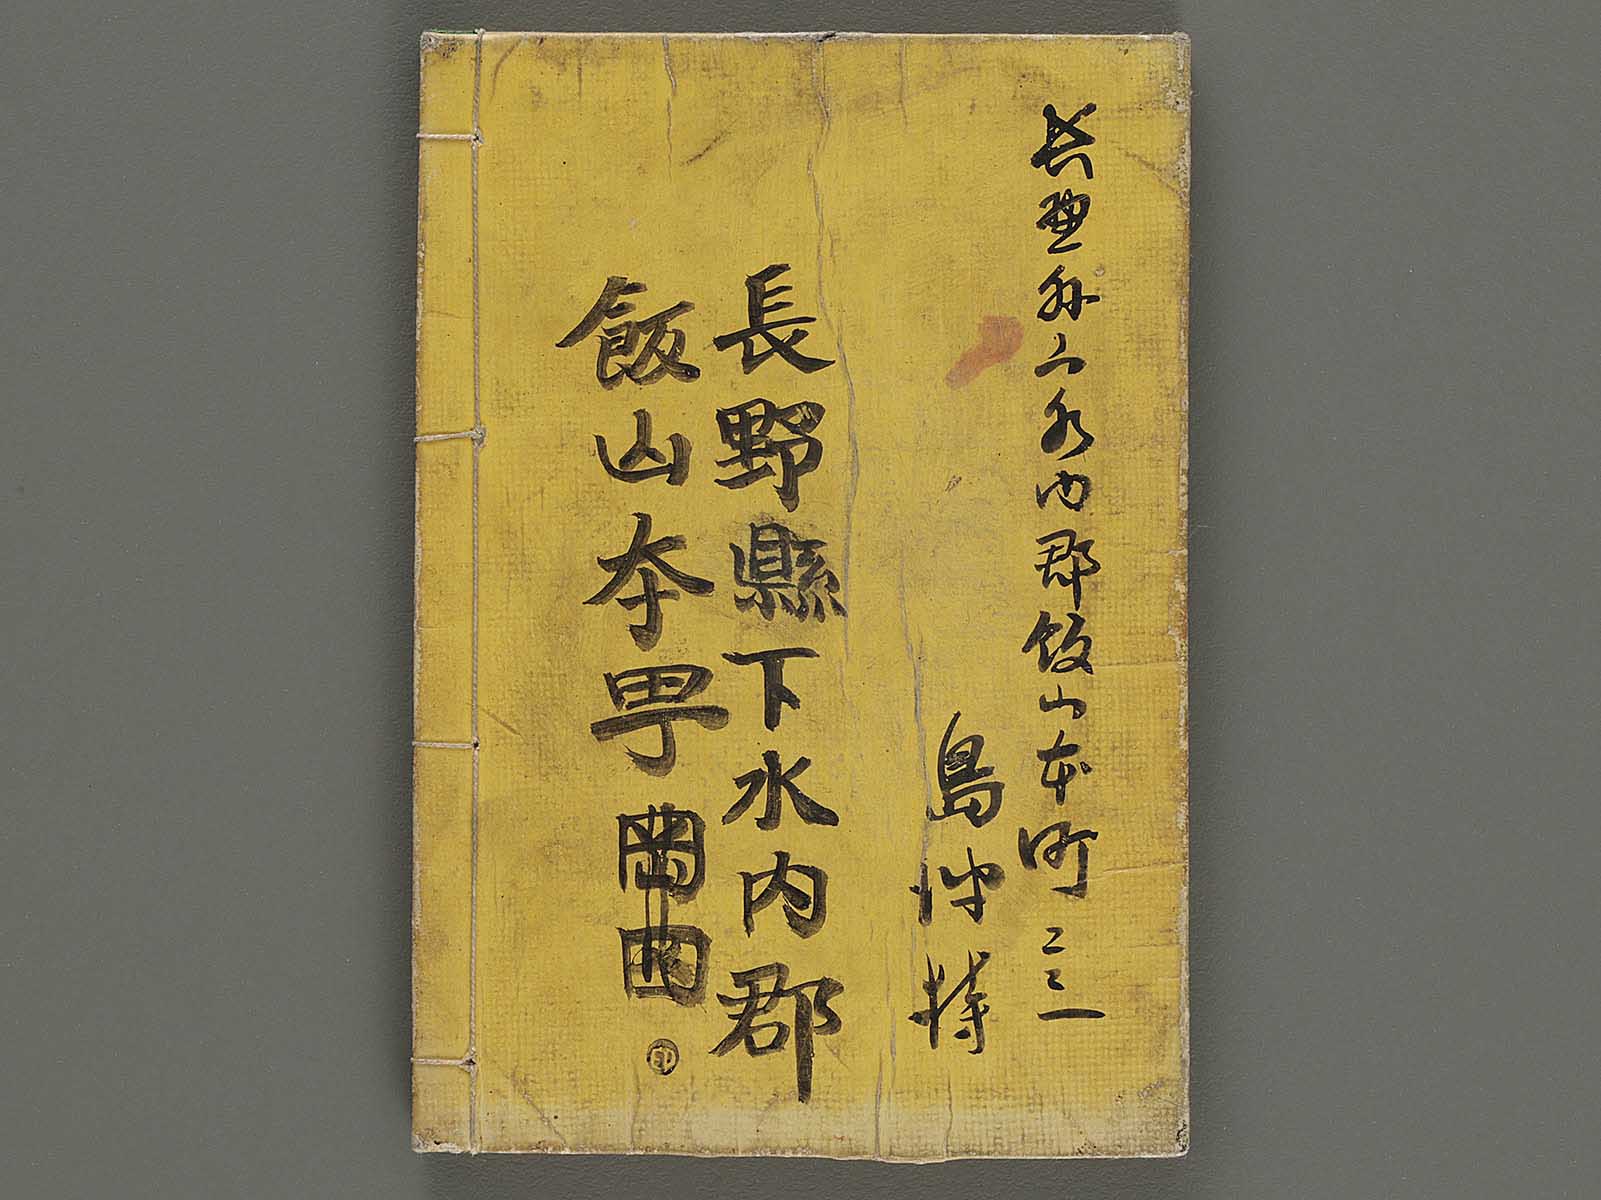 長野縣下水内郡飯山本町二三一
島津
長野縣下水内郡
飯山本町
印